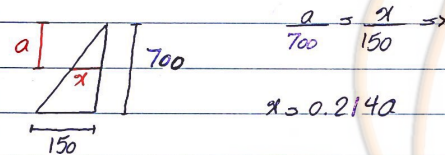 a
x
700
150
a/700 = x/150 =>
x = 0.214a